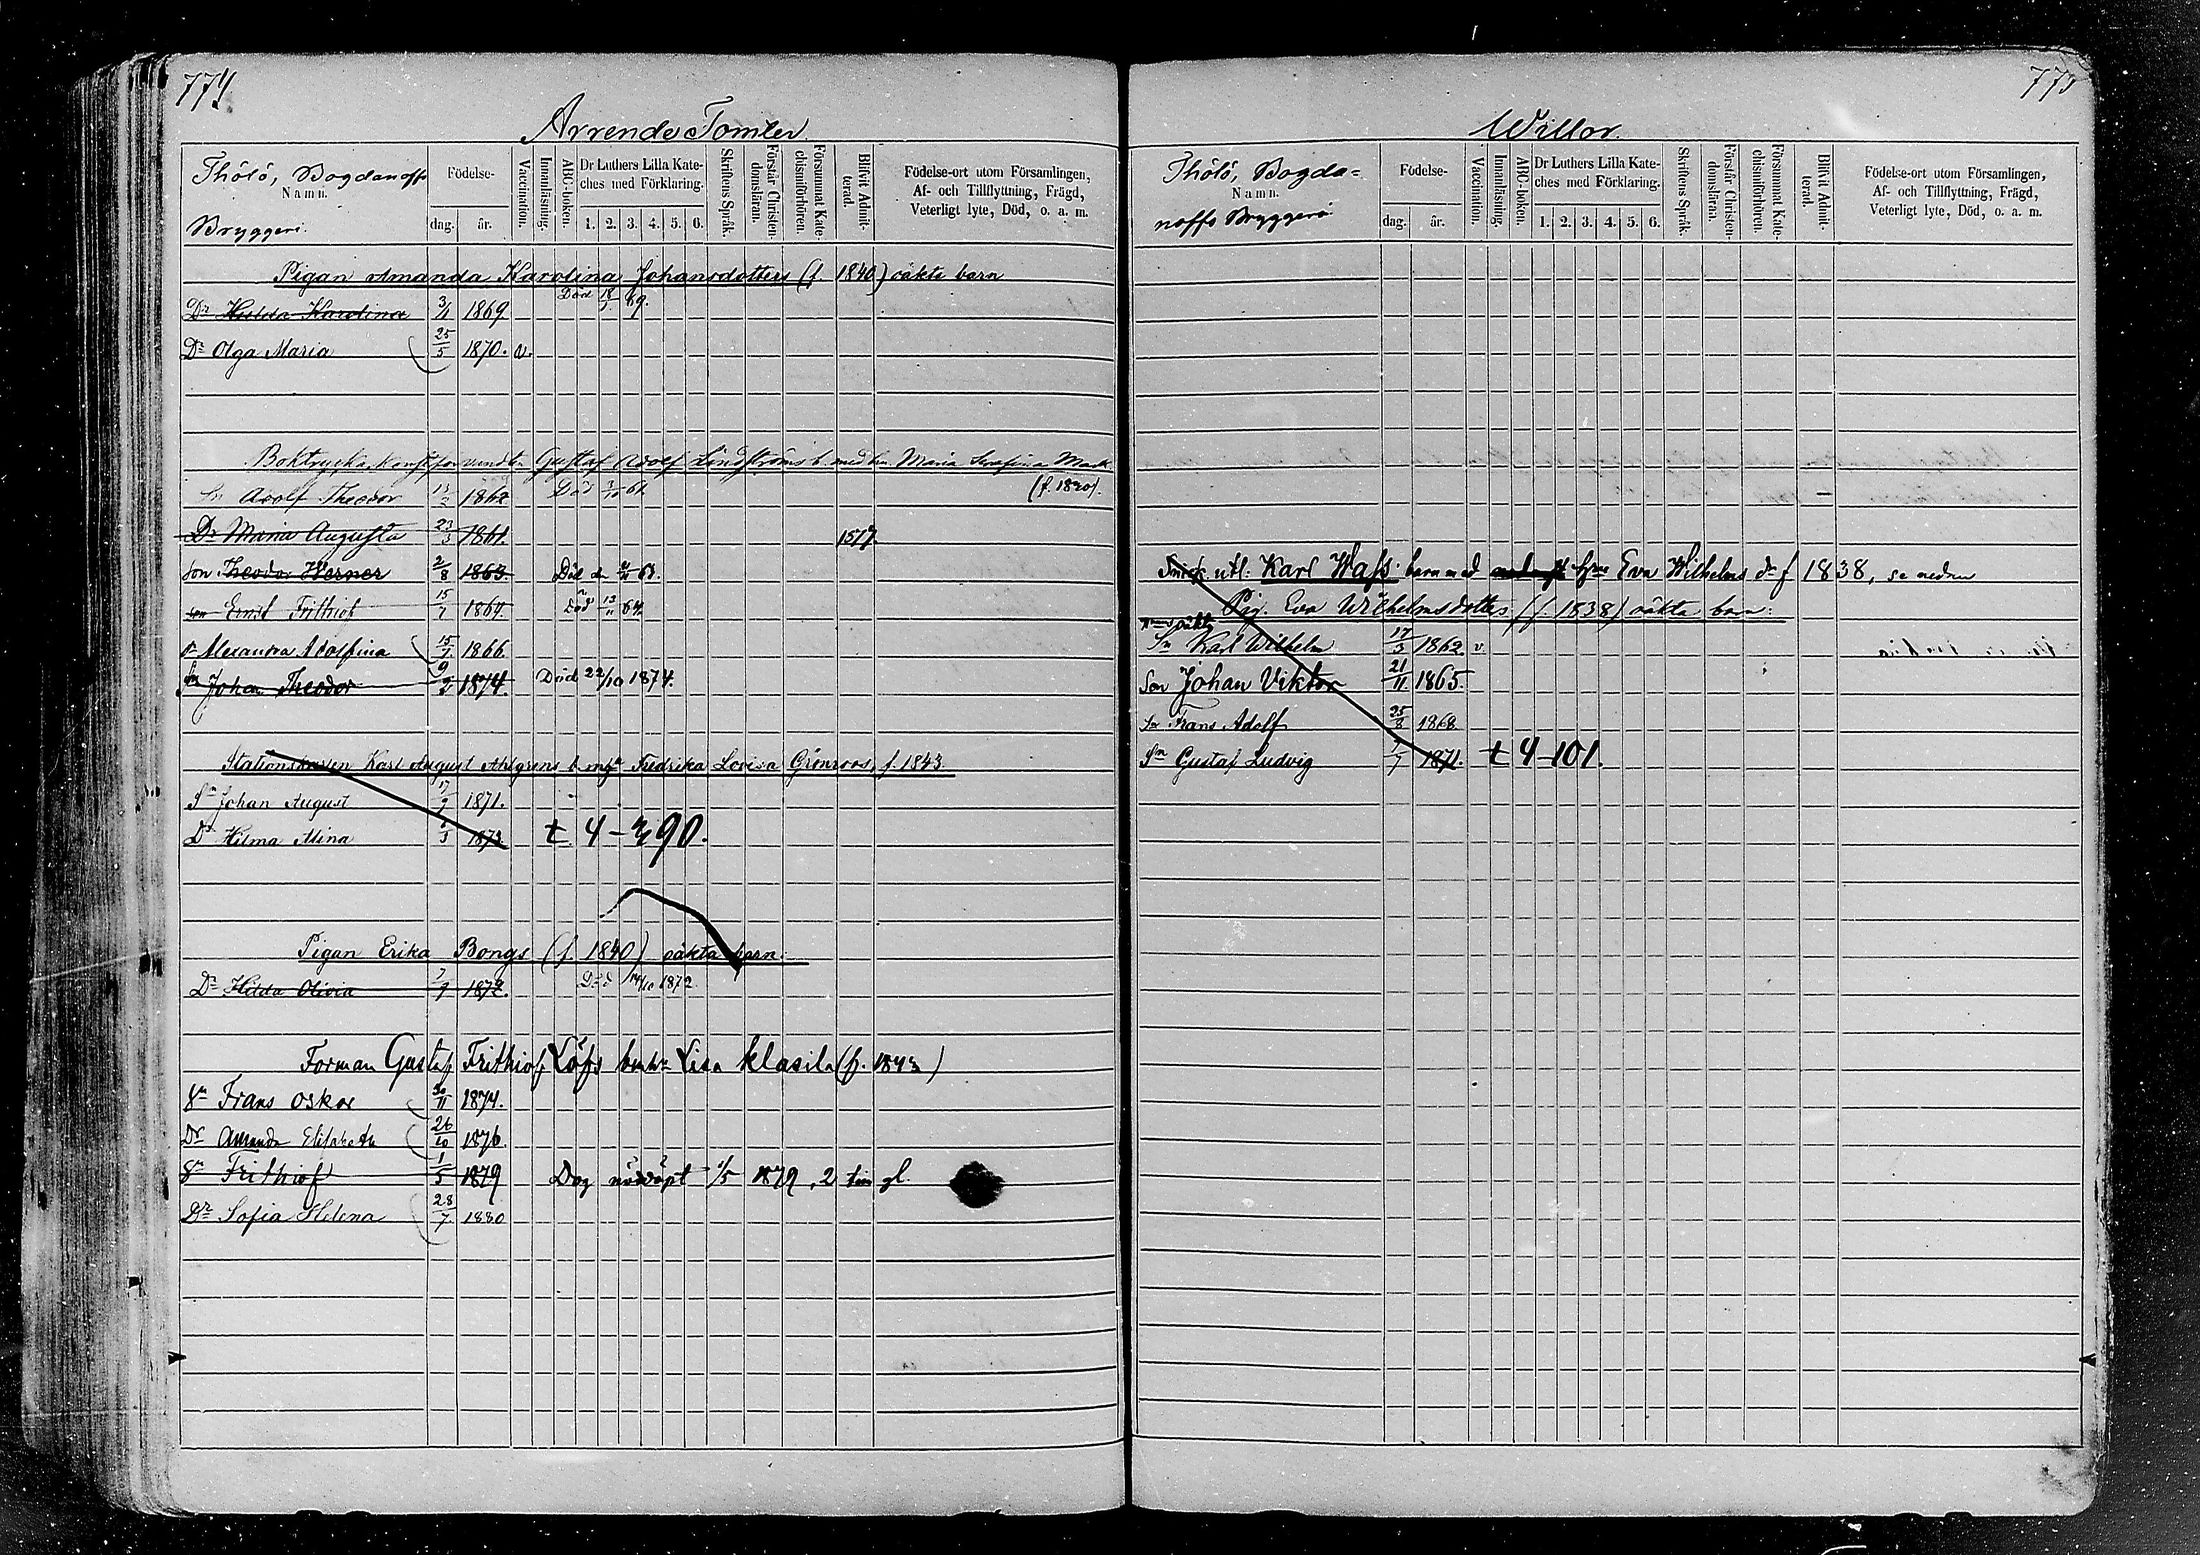 774
Arrende Tomter
Thölö, Bogdanoffs
Namn.
Bryggeri.
Födelse-
dag. år.
Vaccination.
Innanläsning.
ABC-boken.
Dr Luthers Lilla Kate-
ches med Förklaring.
1. 2. 3. 4. 5. 6.
Skriftens Språk.
Förstår Christen-
domsläran.
Försummat Kate-
chismiförhören.
Blifvit Admit-
terad.
Födelse-ort utom Församlingen,
Af- och Tillflyttning, Frägd,
Veterligt lyte, Död, o. a. m.
Pigan Amanda Karolina Johansdotters (f. 1840) oäkta barn
Dr Hulda Karolina 3/1 1869 Död 18/ 69.
Dr Olga Maria 25/5 1870. v.
Gustaf Adolf Lindströms b. med hu Maria Serafina
(f. 1840).
Sn Adolf Theodor 13/2 1862 Död
Dr Maria Augusta 23/3 1861. 1577.
son Theodor Werner 2/8 1863 Död
son Ernst Frithiof 15/7 1864. Död 13/11 64
Dr Alexandra Adolfina 15/1 1866
Sn Johan Theodor 9/2 1874. Död 22/10 1874.
Stationskarlen Karl August Ahlgrens b. m. hu Fredrika Lovisa Grönroos, f. 1843
Sn Johan August 17/9 1871.
Dr Hilma Mina 1873 t. 4-390.
Pigan Erika Bongs (f. 1840) oäkta barn.
Dr Hilda Olivia 7/9 1872. Död 14/10 1872
Forman Gustaf Frithiof Löfs b m hu Lisa Klasila (f. 1843)
Sn Frans Oskar 30/11 1874.
Dr Amanda Elisabeth 26/10 1876.
Sn Frithiof 1/5 1879 Dog nöddöpt 1/5 1879, 2 tim gl.
Dr Sofia Helena 28/7 1880
775
Willor.
Thölö, Bogda=
Namn.
noffs Bryggeri
Födelse-
dag. år.
Vaccination.
Innanläsning.
ABC-boken.
Dr Luthers Lilla Kate-
ches med Förklaring.
1. 2. 3. 4. 5. 6.
Skriftens Språk.
Förstår Christen-
domsläran.
Försummat Kate-
chismiförhören.
Blifvit Admit-
terad.
Födelse-ort utom Församlingen,
Af- och Tillflyttning, Frägd,
Veterligt lyte, Död, o. a. m.
utl. Karl Wass barn med hu Eva Wilhelms dr f 1838, se nedan
Pig. Eva Wilhelmsdotters (f. 1838) oäkta barn:
oäkta
Sn Karl Wilhelm 17/3 1862 v.
Son Johan Viktor 21/11 1865.
Sn Frans Adolf 25/8 1868
Sn Gustaf Ludvig 7/7 1871. t 4-101.